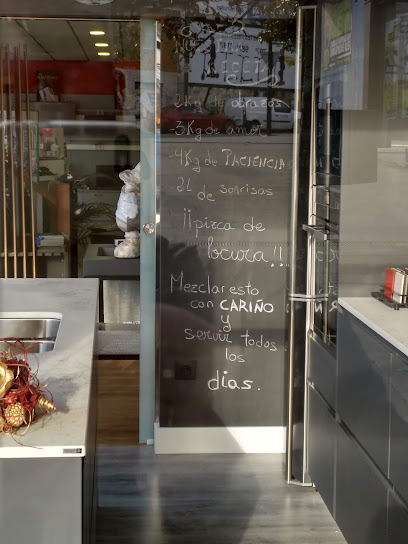 2Kg de abrazos
-3Kg de amor
-4Kg de PACIENCIA
2L de sonrisas
¡¡pizca de
locura!!
Mezclar esto
con CARIÑO
y
servir todos
los
días.